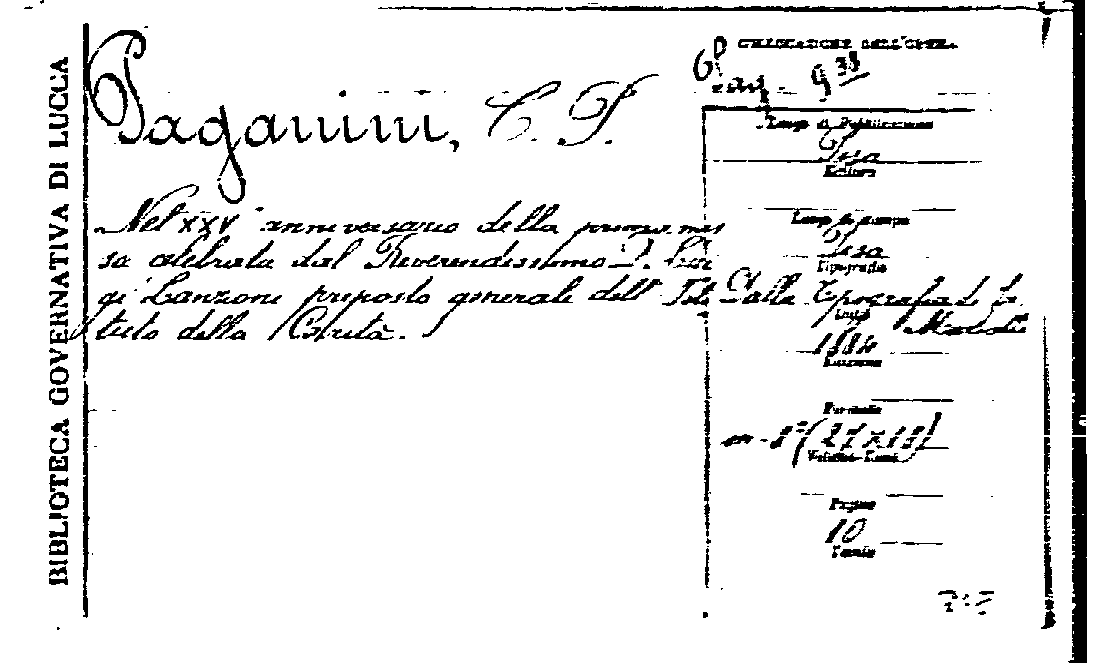 BIBLIOTECA GOVERNATIVA DI LUCCA
Paganini, C. P.
Nel XXV° anniversario della prima mes
sa celebrata dal Reverendissimo D. Lui
gi Lanzoni preposto generale dell' Isti
tuto della Carità.
COLLOCAZIONE DELL'OPERA
Luogo di Pubblicazione
Pisa
Editore
Luogo di stampa
Pisa
Tipografia
Dalla Tipografia di
Mariotti
Data
1884
Edizione
Formato
in-8° (27x18)
Volume-Tomi
Pagine
10
Tavole